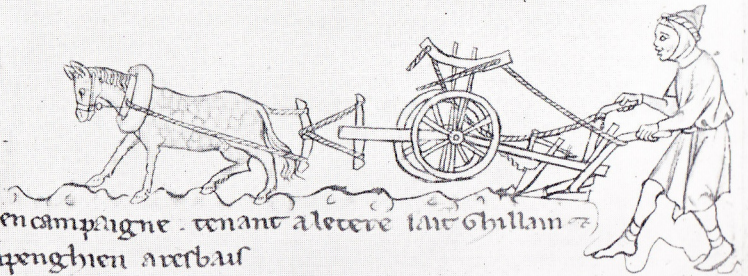 en campaigne . tenant a le tere iait Ghillain
penghien a resbais